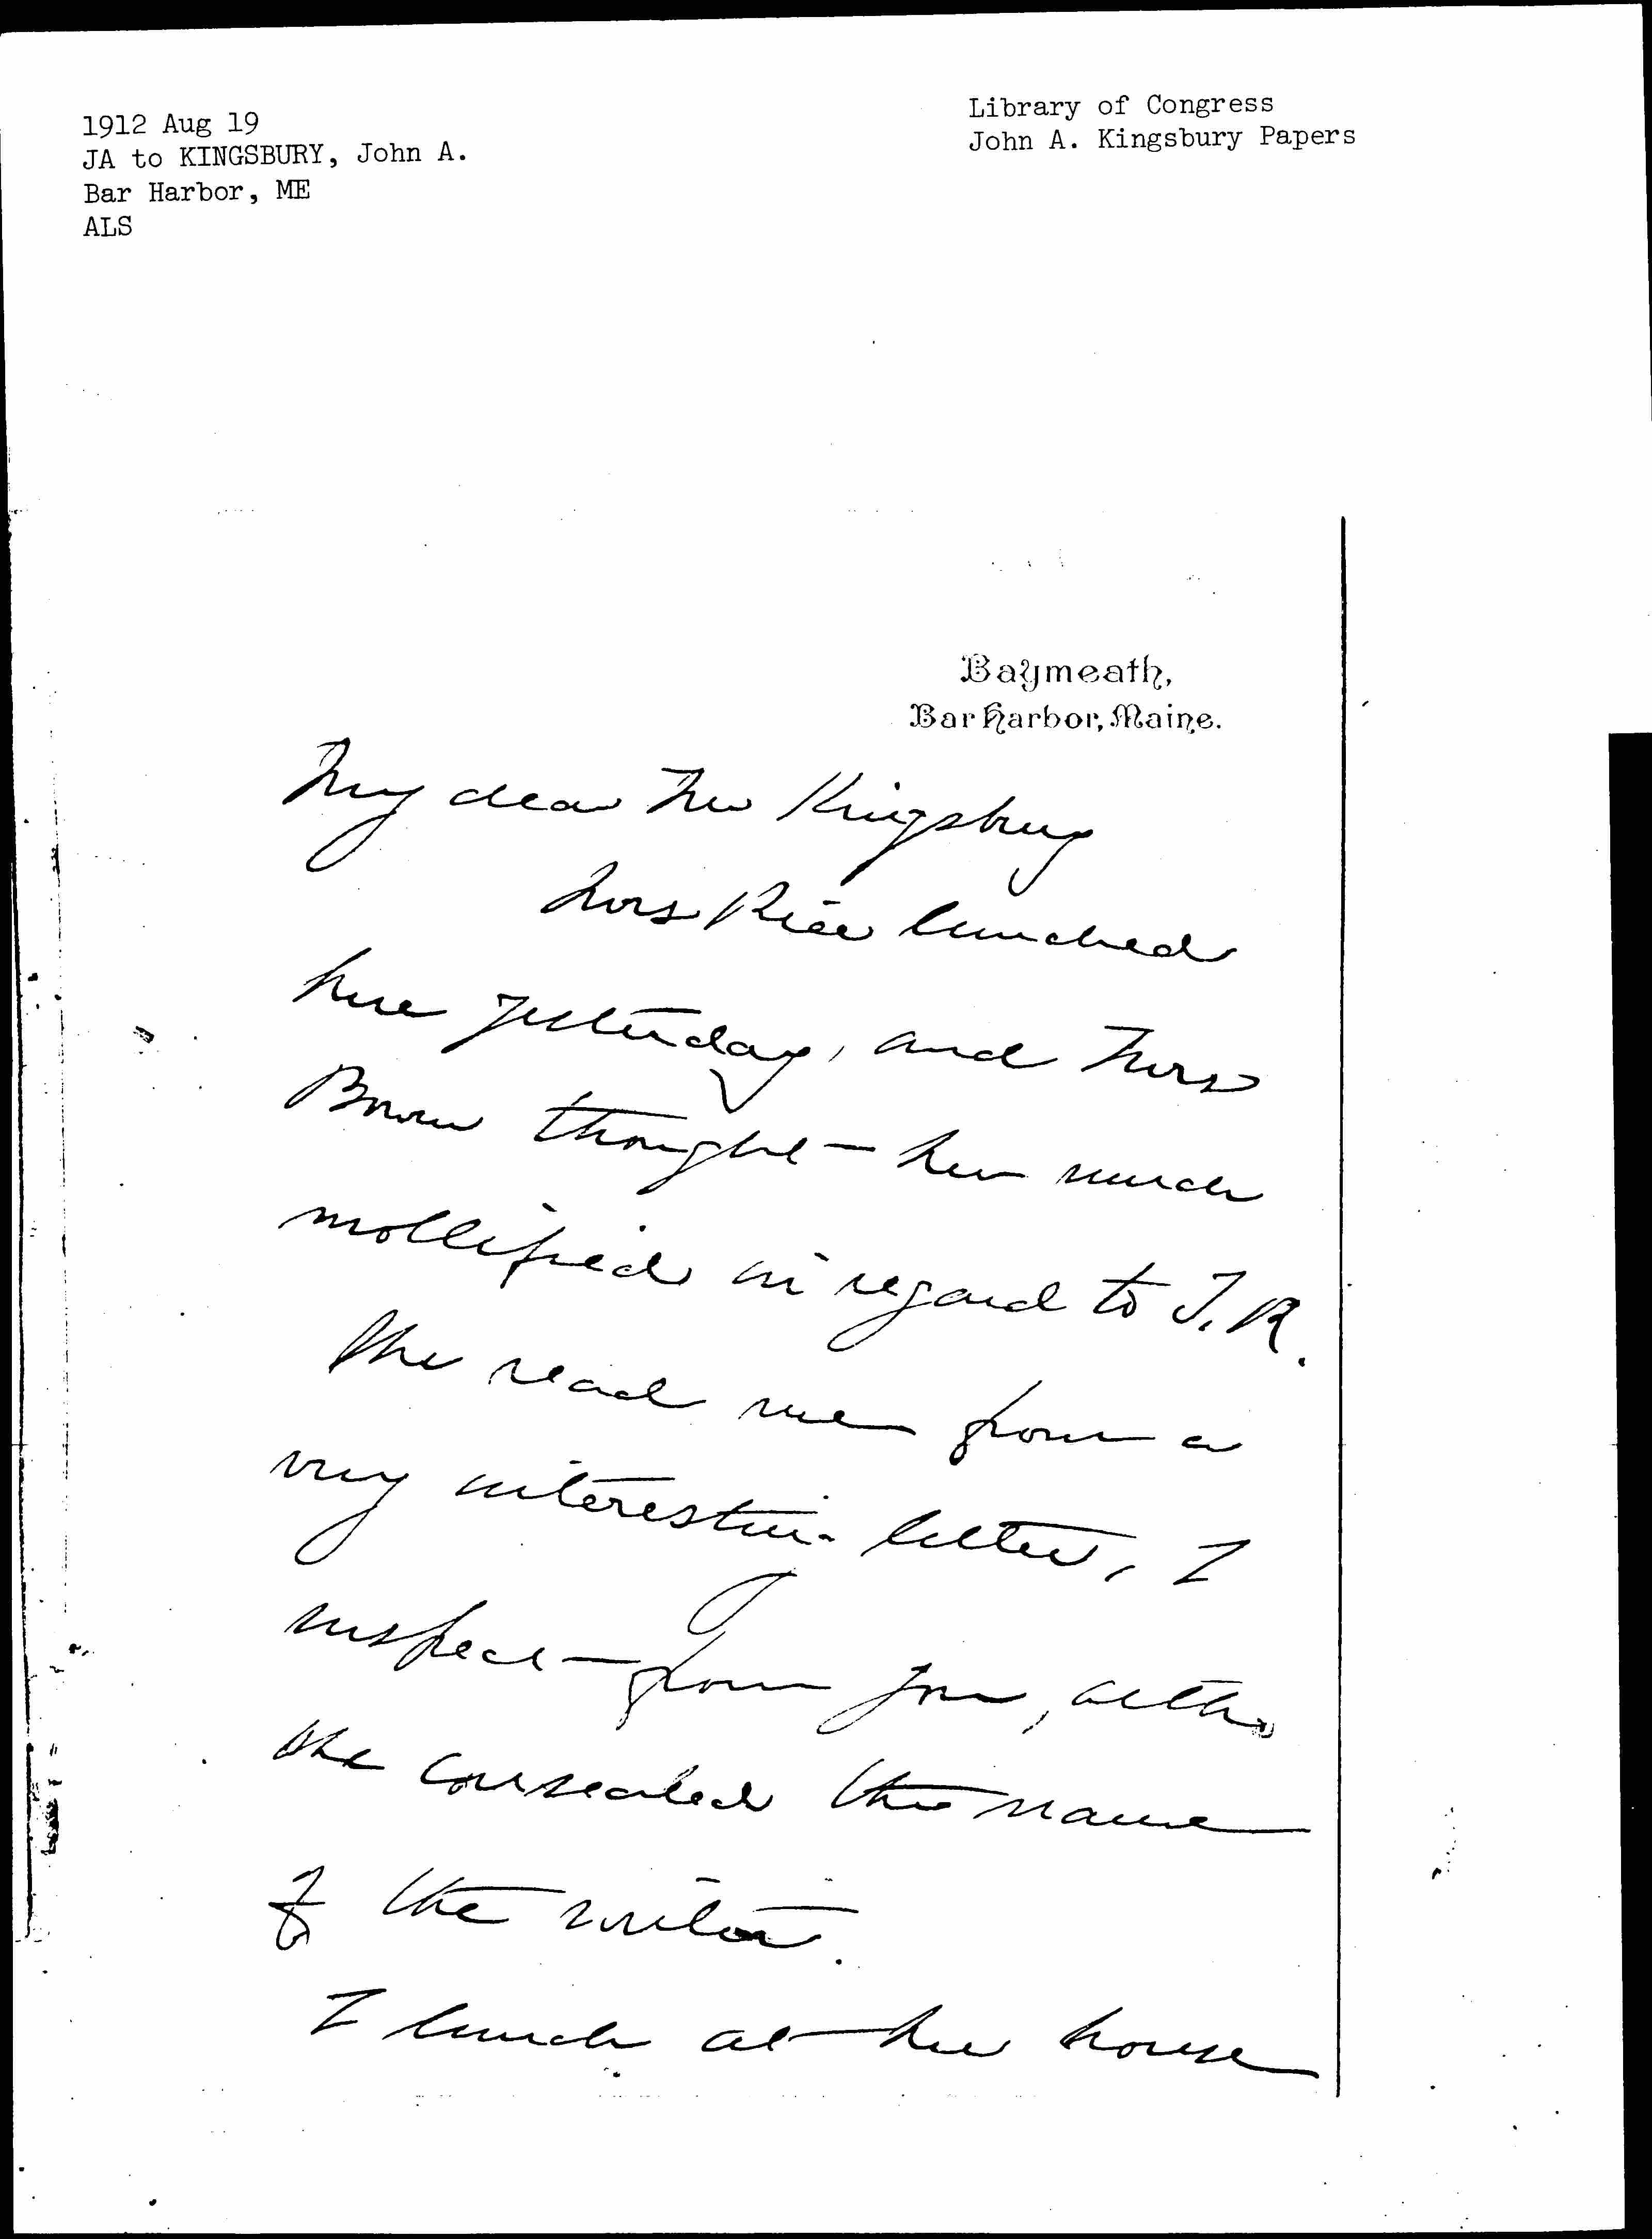 1912 Aug 19
JA to KINGSBURY, John A.
Bar Harbor, ME
ALS
Library of Congress
John A. Kingsbury Papers
Baymeath,
Bar Harbor, Maine.
My dear Mr Kingsbury
Mrs Rice lunched
here yesterday, and Mrs
Bowen thought her much
mollified in regard to T.R.
She read me from a
very interesting letter, I
suspect from you, altho
she consealed the name
of the writer.
I lunch at her house